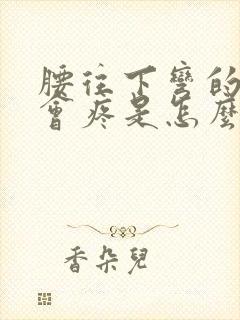 腰往下彎的
會疼是怎麼
香朵兒